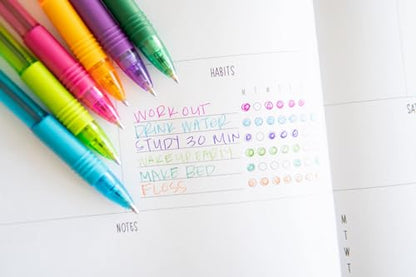 HABITS
M T W T F S S
WORK OUT
DRINK WATER
STUDY 30 MIN
WAKE UP EARLY
MAKE BED
FLOSS
NOTES
M
T
W
T